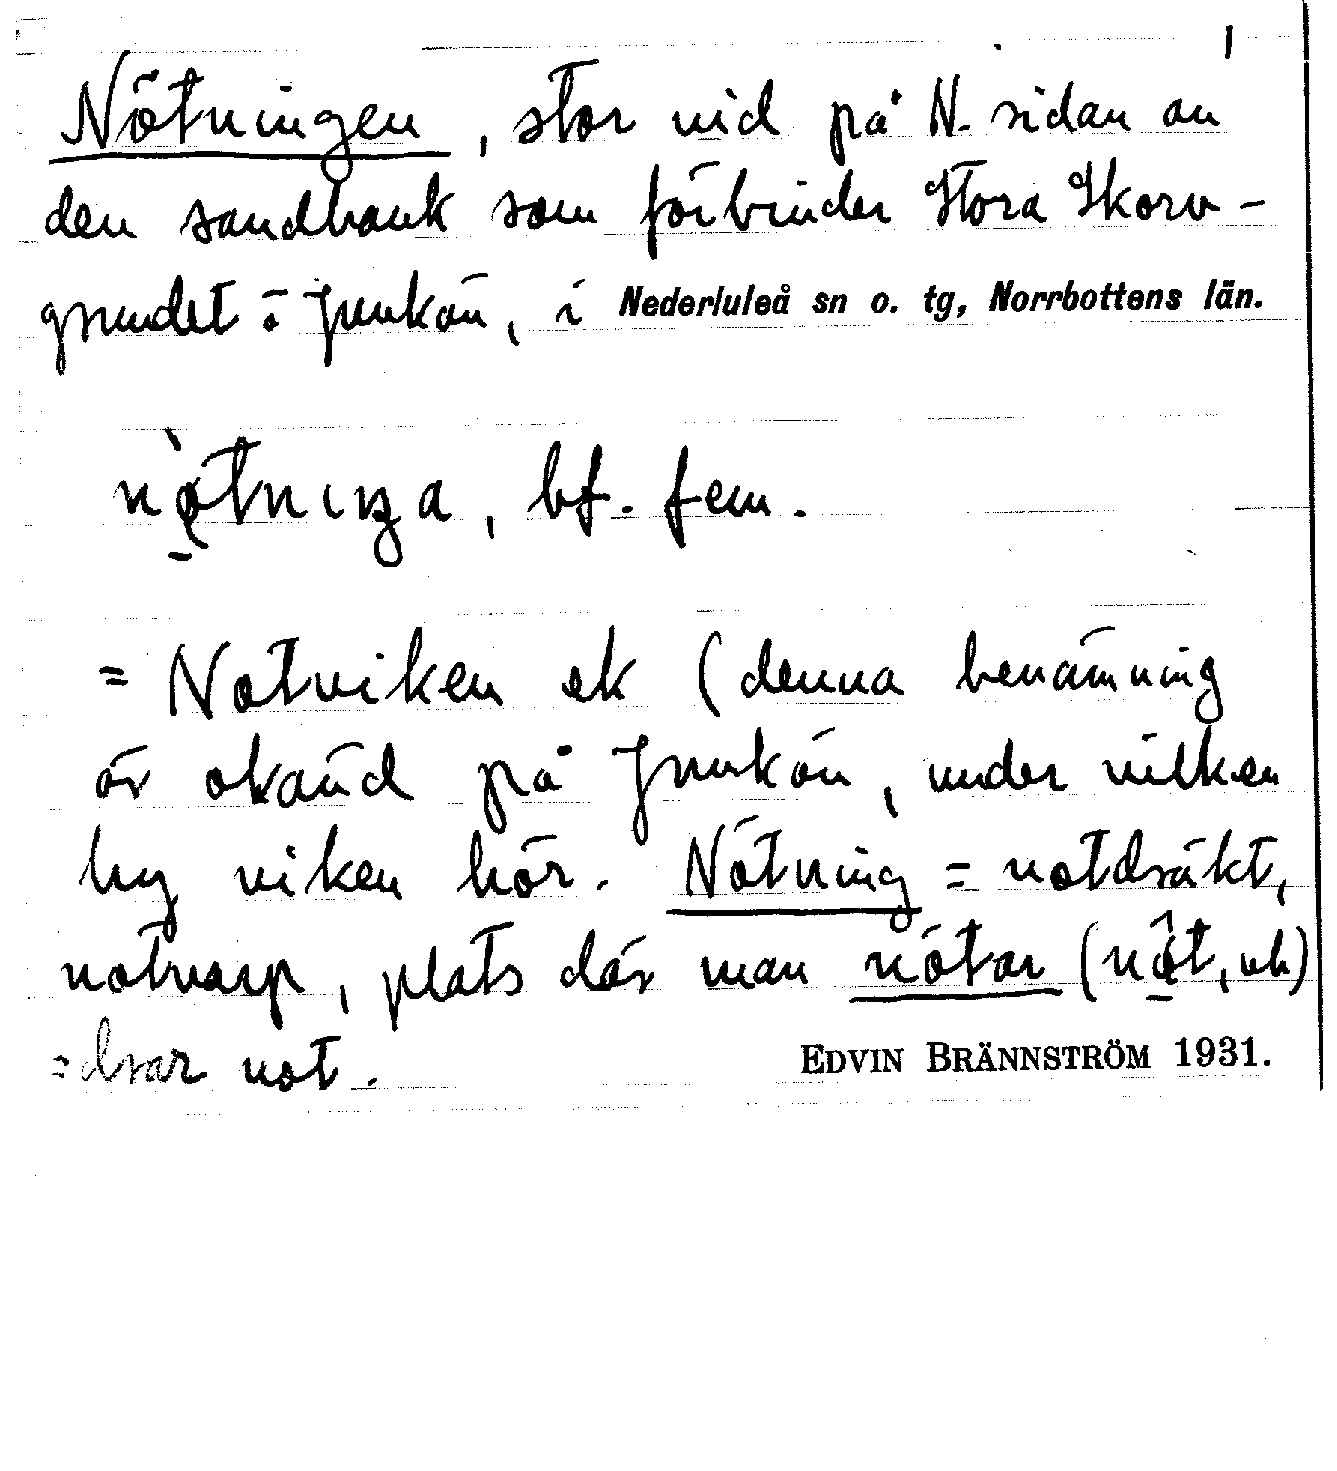 1
Nötningen, stor vid på N. sidan av
den sandbank som förbinder Stora Skorv-
grundet o Junkön, i Nederluleå sn o. tg, Norrbottens län.
bf. fem.
= Notviken ek (denna benämning
är okänd på Junkön, under vilken
by viken hör. Nötning = notdräkt,
notvarp, plats där man nötar (nö̂t, vb)
= drar not.
EDVIN BRÄNNSTRÖM 1931.